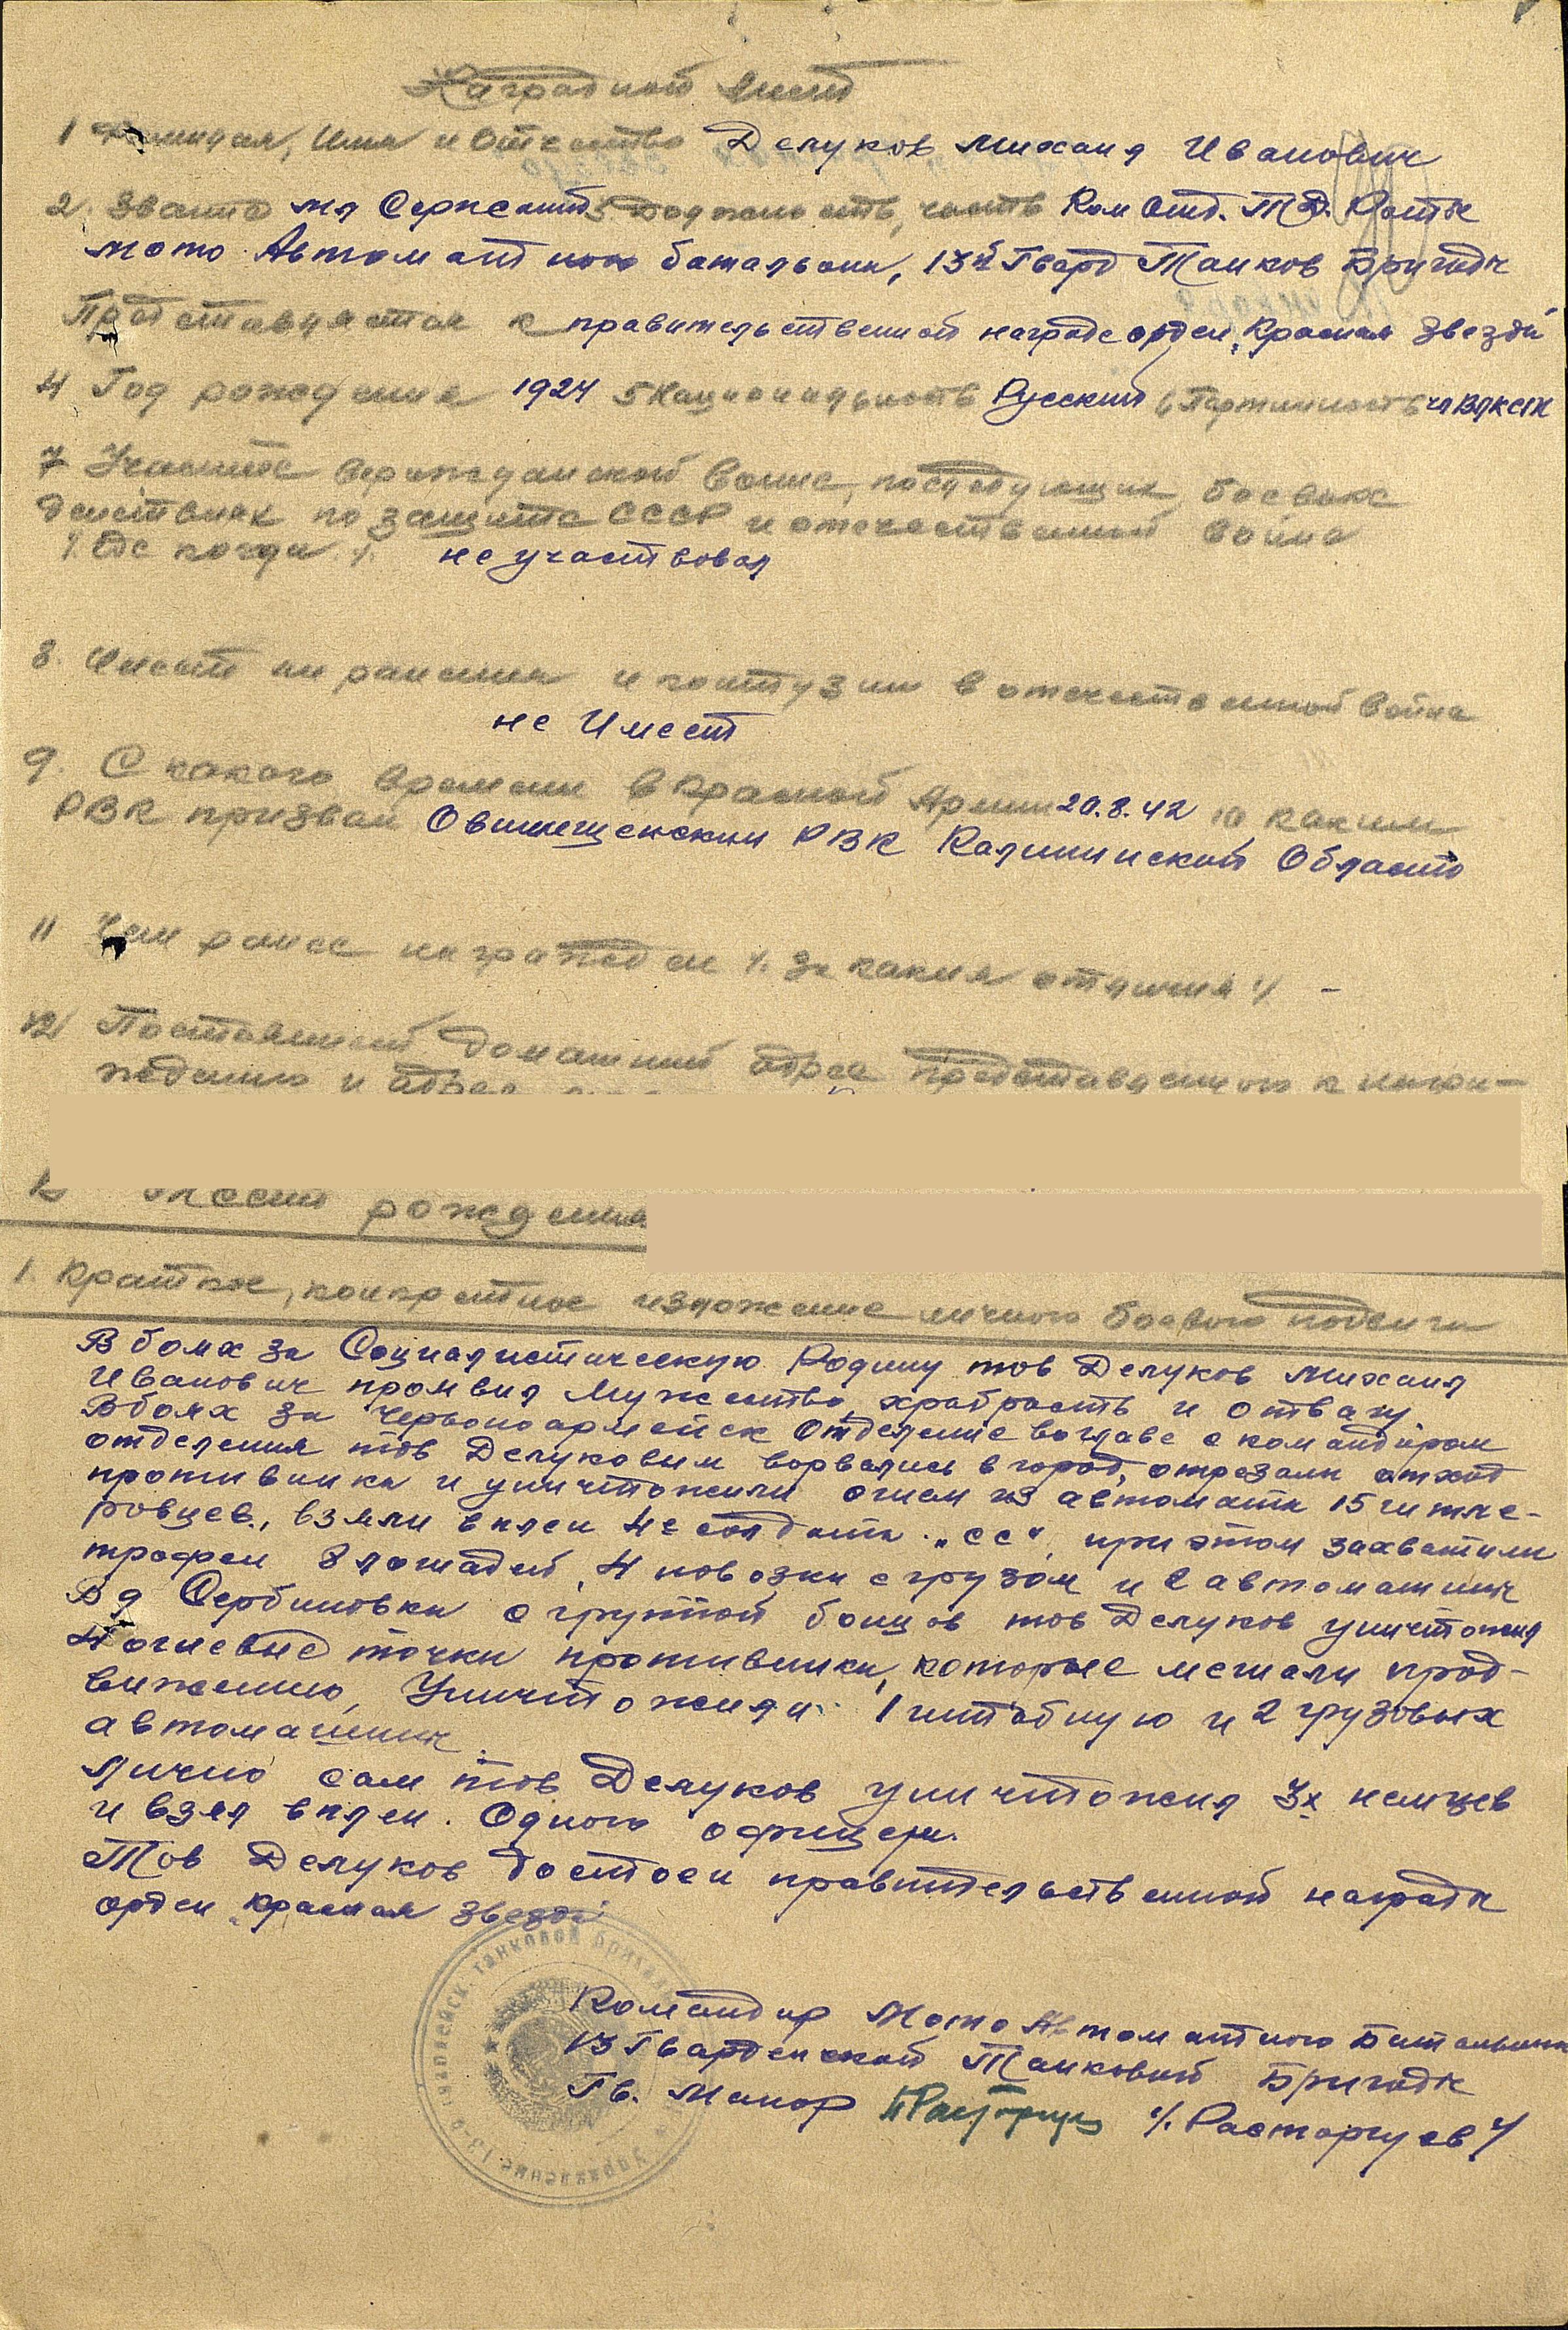 Наградной лист
1 Фамилия, Имя и Отчество Делуков Михаил Иванович
2. Звание мл Сержант 3 Должность, часть Ком Отд. Роты
мото Автоматного батальона, 13й Гвард Танков Бригады
Представляется к правительственной награде орден "Красная Звезды
4 Год рождения 1924 5 Национальность Русский 6 Партийность чл ВЛКСМ
7 Участие в гражданской войне, последующих боевых
действиях по защите СССР и отечественной войне
/. Где когда /. не участвовал
8. Имеет ли ранения и контузии в отечественной войне
не Имеет
9. С какого времени в Красной Армии 20.8.42 10 каким
РВК призван Овинищенским РВК Калининской Области
11 Чем ранее награжден /. За какия отличия ./ -
12 Постоянный домашний адрес представляемого к награ-
ждению и адрес
Место рождения
1. Краткое, конкретное изложение личного боевого подвига
В боях за Социалистическую Родину тов Делуков Михаил
Иванович проявил мужество, храбрость и отвагу.
В боях за Червоноармейск Отделение во главе с командиром
отделения тов Делуковым ворвались в город, отрезали отход
противника и уничтожили огнем из автомата 15 гитле-
ровцев, взяли в плен 4е солдата "сс", при этом захватили
трофеи 8 лошадей, 4 повозки с грузом и 2 автомашины
В д Сербиновка с группой бойцов тов Делуков уничтожил
4 огневые точки противника, которые мешали прод-
вижению, Уничтожили 1 штабную и 2 грузовых
автомашины.
Лично сам тов Делуков уничтожил 3х немцев
и взял в плен. Одного офицера.
Тов Делуков достоен правительственной награды
орден "Красная Звезда
Командир Мото Автоматного Батальона
13 Гварденской Танковой Бригады
Гв. Маиор /. Расторгуев ./